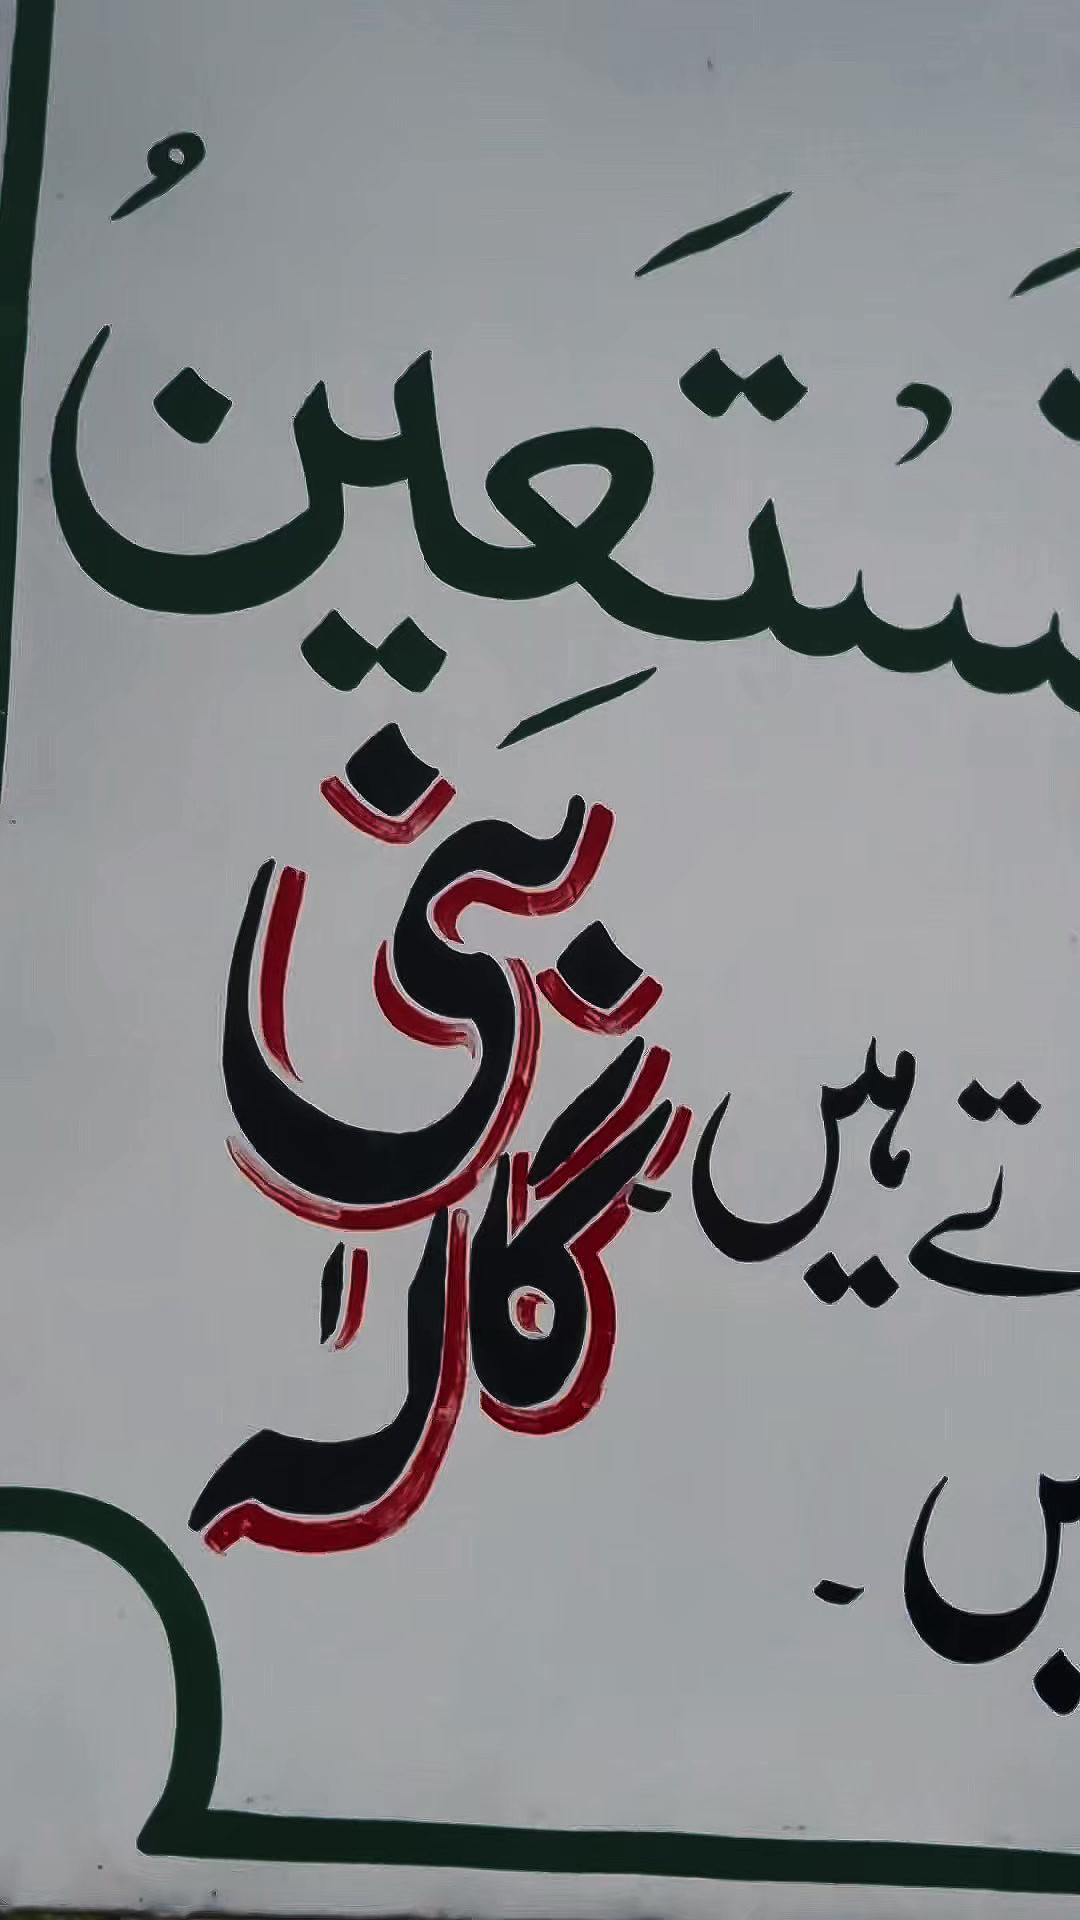 نَسْتَعِينُ
تے ہیں
بنی گالہ
یں ۔